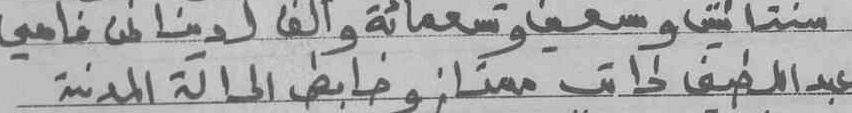 سنة اثنين وسبعين وتسعمائة وألف لدينا نحن فاسي
عبد اللطيف كاتب ممتاز وضابط الحالة المدنية